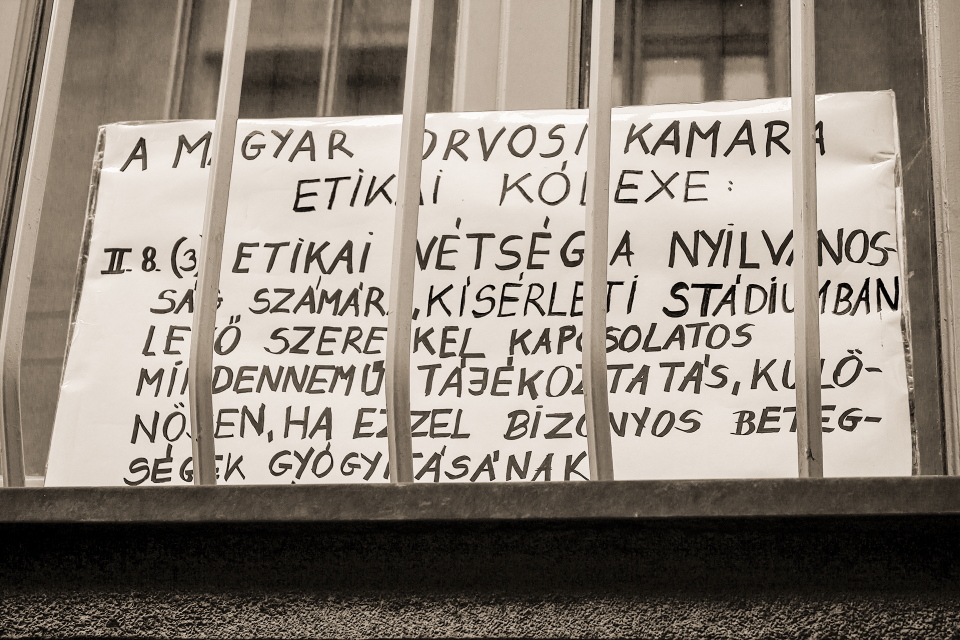 A MAGYAR ORVOSI KAMARA
ETIKAI KÓDEXE:
II. 8. (3) ETIKAI VÉTSÉG A NYILVÁNOS-
SÁG SZÁMÁRA, KÍSÉRLETI STÁDIUMBAN
LEVŐ SZEREKKEL KAPCSOLATOS
MINDENNEMŰ TÁJÉKOZTATÁS, KÜLÖ-
NÖSEN, HA EZZEL BIZONYOS BETEG-
SÉGEK GYÓGYÍTÁSÁNAK